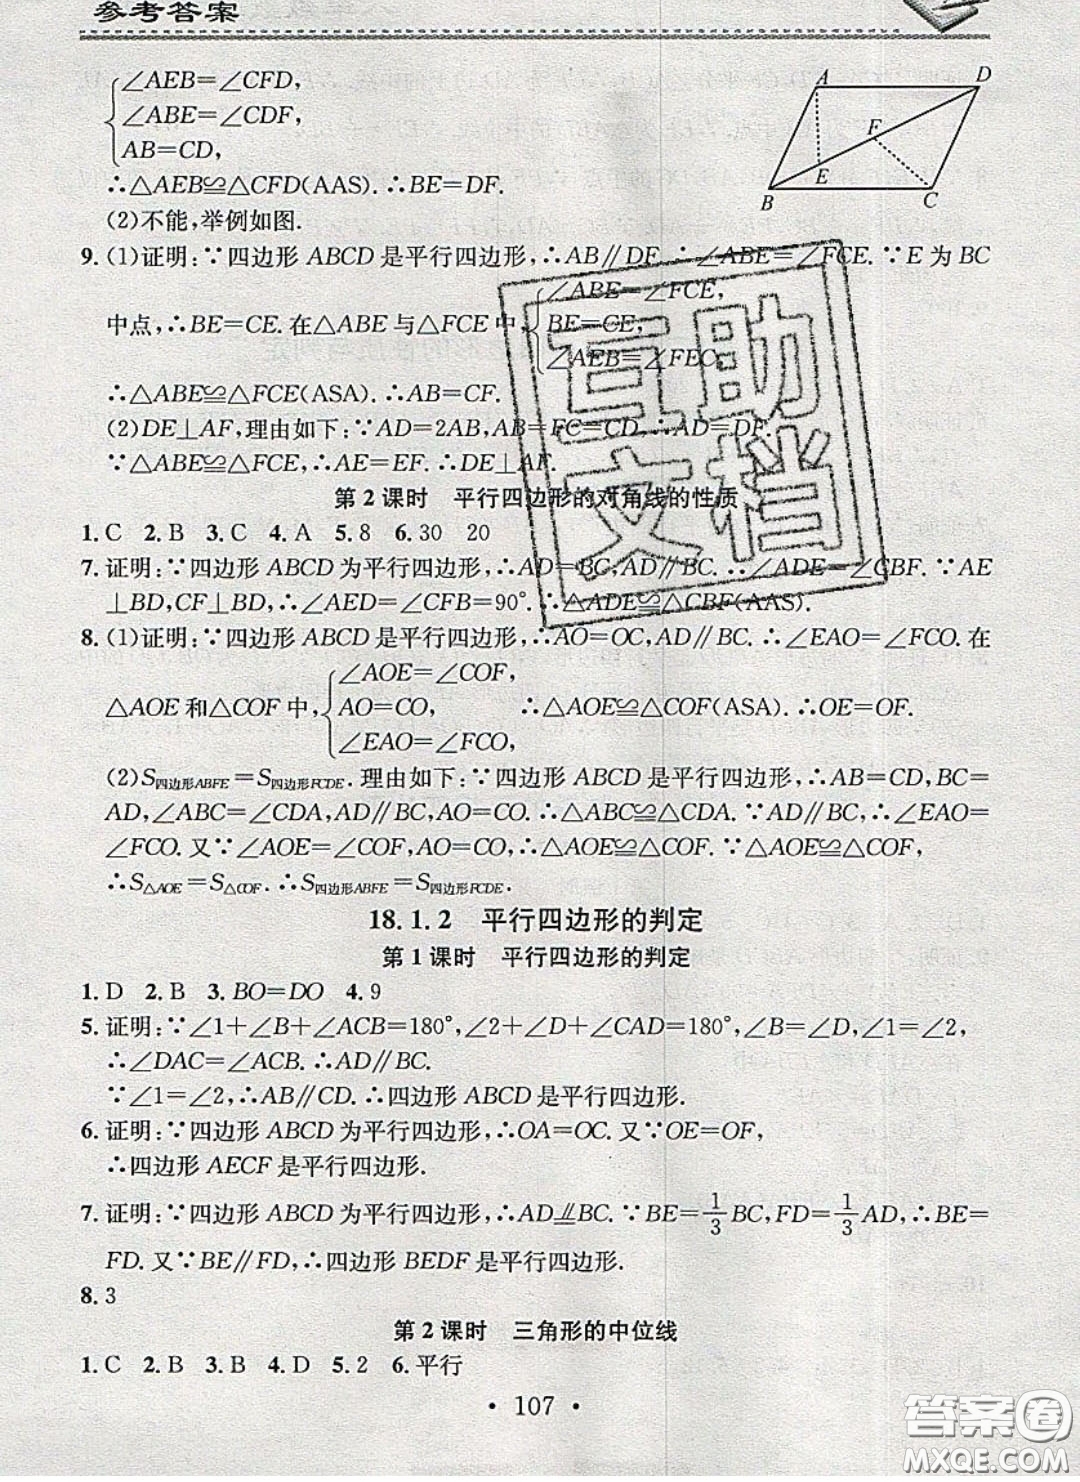 参考答案
∠AEB=∠CFD,
∠ABE=∠CDF,
AB=CD,
∴△AEB≌△CFD(AAS).∴BE=DF.
(2)不能,举例如图.
A
D
F
E
B
C
9.(1)证明:∵四边形ABCD是平行四边形,∴AB∥DE.∴∠ABE=∠FCE.∵E为BC
中点,∴BE=CE.在△ABE与△FCE中,
∠ABE=∠FCE,
BE=CE,
∠AEB=∠FEC,
∴△ABE≌△FCE(ASA).∴AB=CF.
(2)DE⊥AF,理由如下:∵AD=2AB,AB=FC=CD,∴AD=DF.
∵△ABE≌△FCE,∴AE=EF.∴DE⊥AF.
第2课时 平行四边形的对角线的性质
1.C 2.B 3.C 4.A 5.8 6.30 20
7.证明:∵四边形ABCD为平行四边形,∴AD=BC,AD∥BC.∴∠ADE=∠CBF.∵AE
⊥BD,CF⊥BD,∴∠AED=∠CFB=90°.∴△ADE≌△CBF(AAS).
8.(1)证明:∵四边形ABCD是平行四边形,∴AO=OC,AD∥BC.∴∠EAO=∠FCO.在
△AOE和△COF中,
∠AOE=∠COF,
AO=CO,
∠EAO=∠FCO,
∴△AOE≌△COF(ASA).∴OE=OF.
(2)S四边形ABFE=S四边形FCDE.理由如下:∵四边形ABCD是平行四边形,∴AB=CD,BC=
AD,∠ABC=∠CDA,AD∥BC,AO=CO.∴△ABC≌△CDA.∵AD∥BC,∴∠EAO=
∠FCO.又∵∠AOE=∠COF,AO=CO,∴△AOE≌△COF.∵△AOE≌△COF,
∴S△AOE=S△COF.∴S四边形ABFE=S四边形FCDE.
18.1.2 平行四边形的判定
第1课时 平行四边形的判定
1.D 2.B 3.BO=DO 4.9
5.证明:∵∠1+∠B+∠ACB=180°,∠2+∠D+∠CAD=180°,∠B=∠D,∠1=∠2,
∴∠DAC=∠ACB.∴AD∥BC.
∵∠1=∠2,∴AB∥CD.∴四边形ABCD是平行四边形.
6.证明:∵四边形ABCD为平行四边形,∴OA=OC.又∵OE=OF,
∴四边形AECF是平行四边形.
7.证明:∵四边形ABCD为平行四边形,∴AD⫽BC.∵BE=1/3BC,FD=1/3AD,∴BE=
FD.又∵BE∥FD,∴四边形BEDF是平行四边形.
8.3
第2课时 三角形的中位线
1.C 2.B 3.B 4.D 5.2 6.平行
• 107 •
互助
文档
答案卷
MXQE.COM